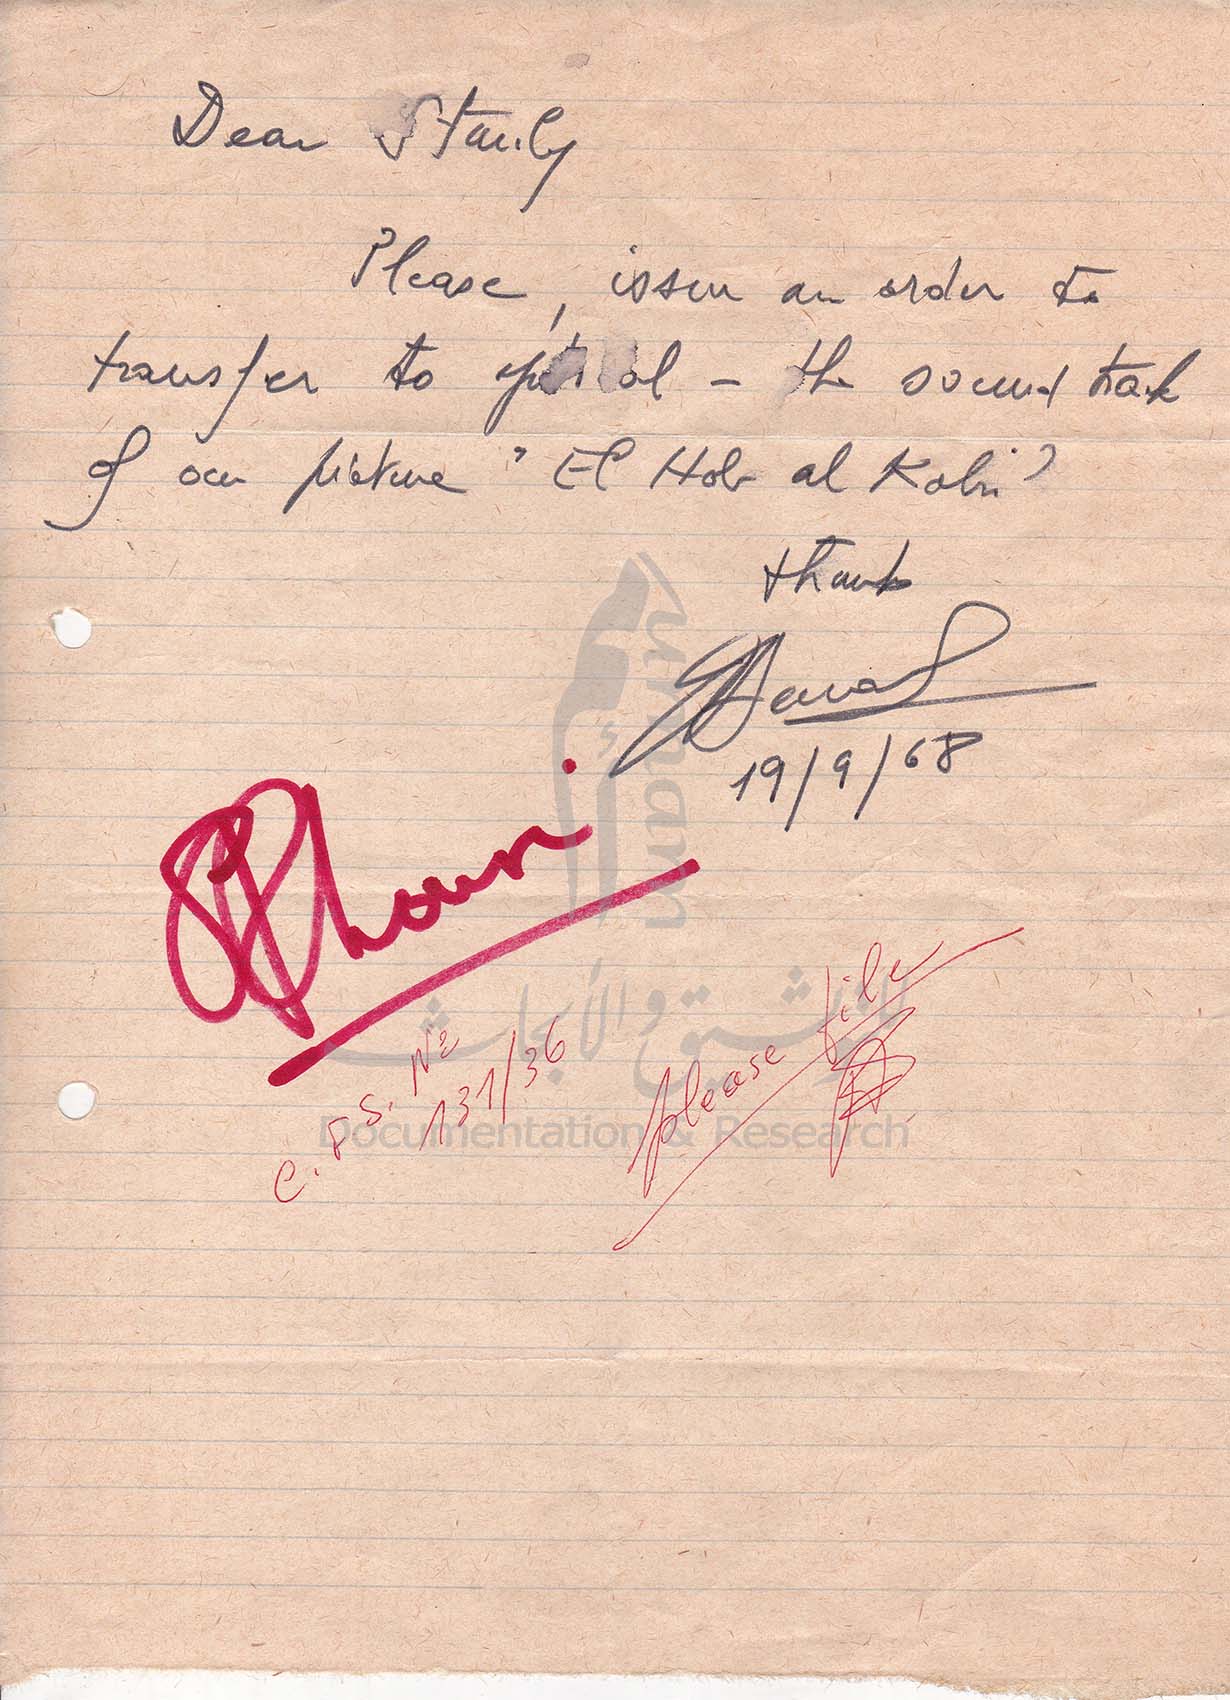 Dear Stanly
Please, issue an order to
transfer to optical – the sound track
of our picture "El Hob al Kabir"
thanks
19/9/68
C.F.S. Nº
131/36
please file
umam
للتوثيق والأبحاث
Documentation & Research